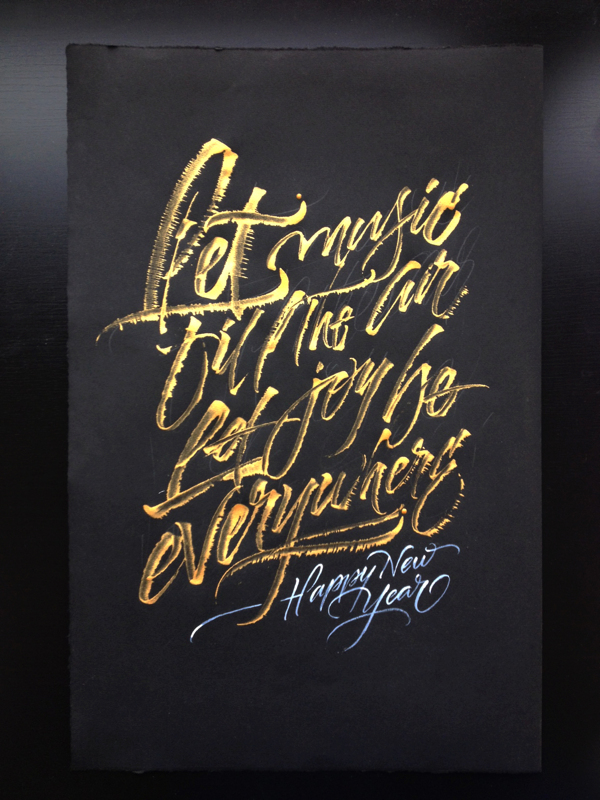 Let music
fill the air,
let joy be
everywhere
Happy New
Year